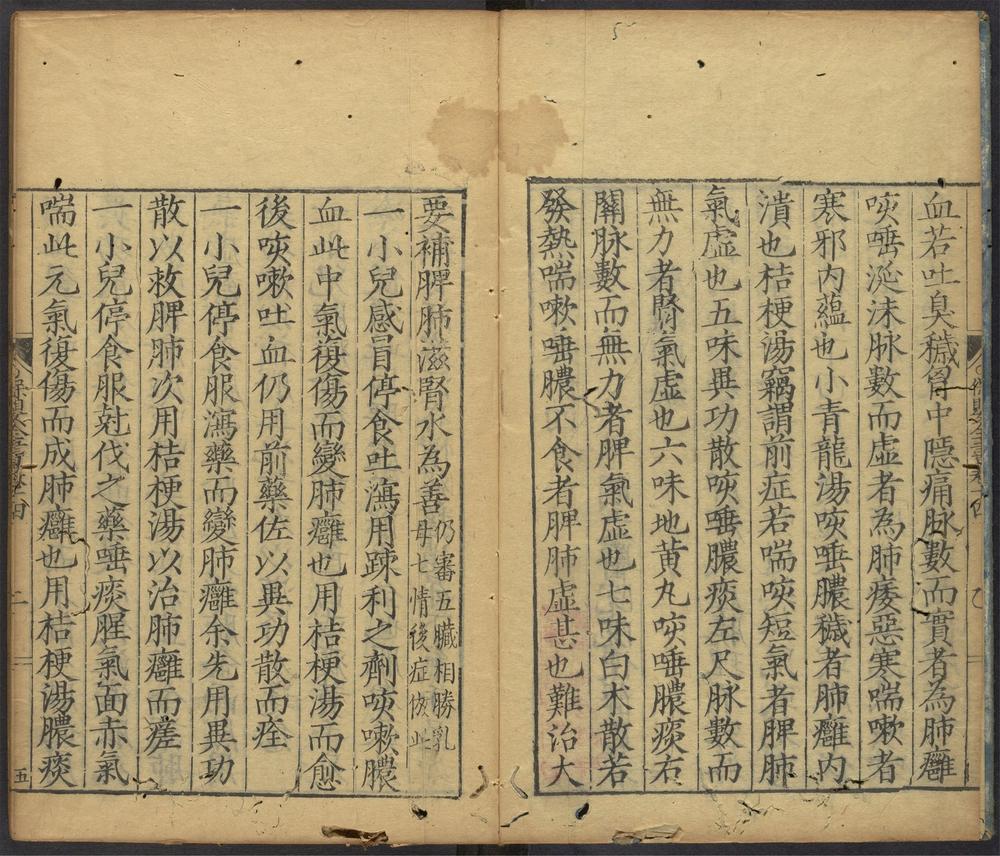 血若吐臭穢胷中隱痛脉數而實者為肺癰
咳唾涎沫脉數而虛者為肺痿惡寒喘嗽者
寒邪内蘊也小青龍湯咳唾膿穢者肺癰内
潰也桔梗湯竊謂前症若喘咳短氣者脾肺
氣虛也五味異功散咳唾膿痰左尺脉數而
無力者腎氣虛也六味地黄丸咳唾膿痰右
關脉數而無力者脾氣虛也七味白术散若
發熱喘嗽唾膿不食者脾肺虛甚也難治大
要補脾肺滋腎水為善仍審五臟相勝乳
母七情後症倣此
一小兒感冒停食吐瀉用疎利之劑咳嗽膿
血此中氣復傷而變肺癰也用桔梗湯而愈
後咳嗽吐血仍用前藥佐以異功散而痊
一小兒停食服瀉藥而變肺癰余先用異功
散以救脾肺次用桔梗湯以治肺癰而瘥
一小兒停食服尅伐之藥唾痰腥氣面赤氣
喘此元氣復傷而成肺癰也用桔梗湯膿痰
五